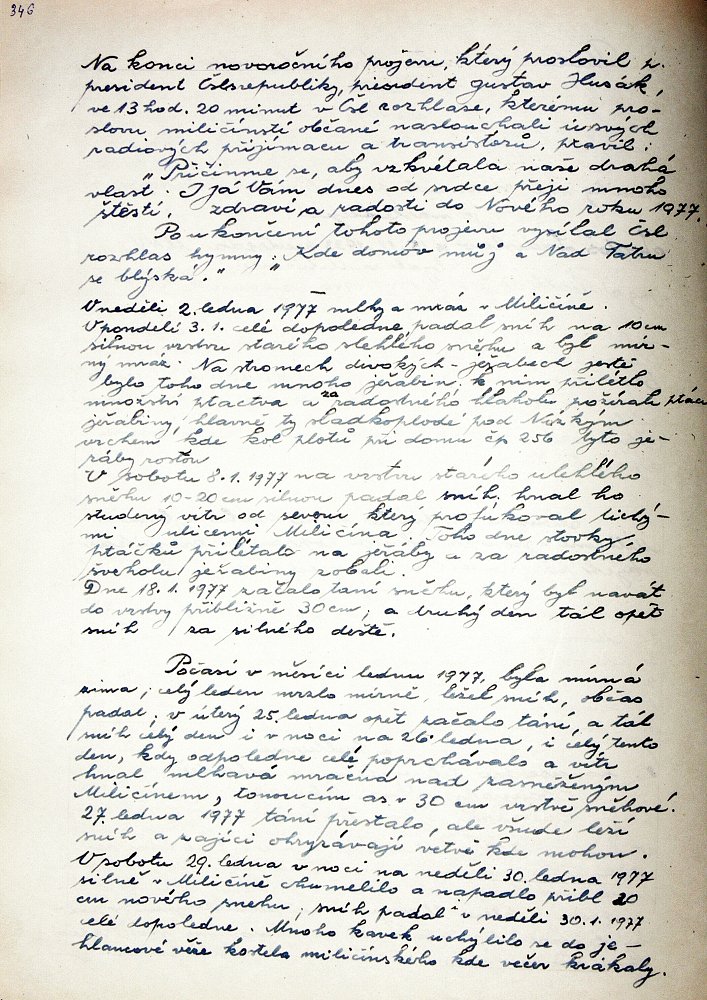 346
Na konci novoročního projevu, který proslovil p.
president Čsl. republiky, president Gustav Husák,
ve 13 hod. 20 minut v Čsl rozhlase, kterému pro-
slovu miličínstí občané naslouchali u svých
radiových přijímačů a transistorů, pravil:
"Přičiňme se, aby vzkvétala naše drahá
vlast. I já Vám dnes od srdce přeji mnoho
štěstí, zdraví a radosti do Nového roku 1977.
Po ukončení tohoto projevu vysílal Čsl
rozhlas hymny: "Kde domov můj a Nad Tatru
se blýská."
V neděli 2. ledna 1977 mlhy a mráz v Miličíně.
V pondělí 3.1. celé dopoledne padal sníh na 10 cm
silnou vrstvu starého slehlého sněhu a byl mír-
ný mráz. Na stromech divokých-jeřabech ještě
bylo toho dne mnoho jeřabin. K nim přilétlo
množství ptactva a za radostného hlaholu požírali ptáci
jeřabiny, hlavně ty sladkoplodé pod Nízkým
vrchem kde kol plotů při domu čp 256 tyto je-
řáby rostou
V sobotu 8.1.1977 na vrstvu starého ulehlého
sněhu 10-20 cm silnou padal sníh. hnal ho
studený vítr od severu který profukoval tichý-
mi ulicemi Miličína. Toho dne stovky
ptáčků přilétalo na jeřáby a za radostného
švehołu jeřabiny zobali.
Dne 18.1.1977 začalo tání sněhu, který byl navát
do vrstvy přibližně 30 cm; a druhý den tál opět
sníh za silného deště.
Počasí v měsíci lednu 1977. byla mírná
zima; celý leden mrzlo mírně, ležel sníh, občas
padal; v úterý 25. ledna opět začalo tání, a tál
sníh celý den i v noci na 26. ledna, i celý tento
den, kdy odpoledne celé poprchávalo a vítr
hnal mlhavá mračna nad zasněženým
Miličínem, tonoucím as v 30 cm vrstvě sněhové.
27. ledna 1977 tání přestalo, ale všude leží
sníh a zajíci ohryzávají větve kde mohou.
V sobotu 29. ledna v noci na neděli 30. ledna 1977
silně v Miličíně chumelilo a napadlo přibl 20
cm nového sněhu; sníh padal i v neděli 30.1.1977
celé dopoledne. Mnoho kavek uchýlilo se do je-
hlancové věže kostela miličínského kde večer krákaly.